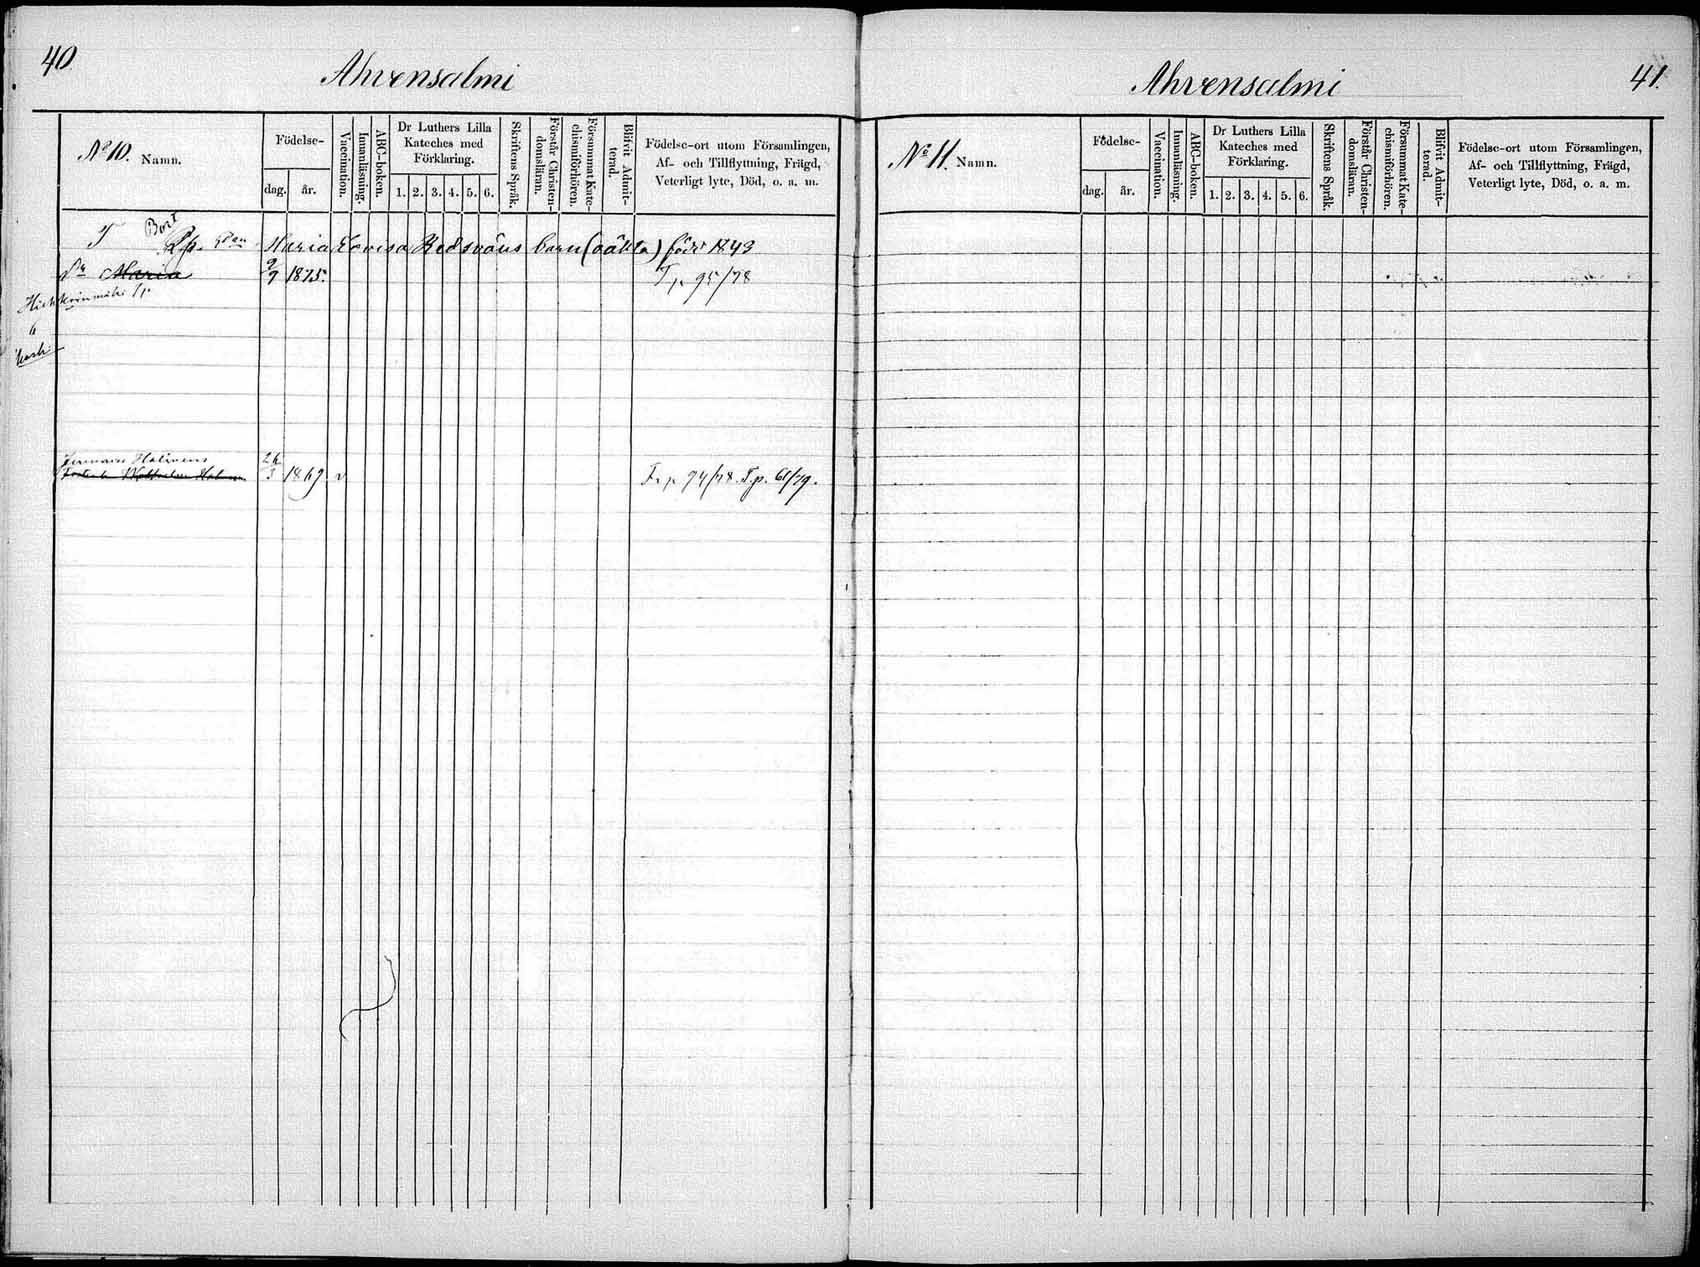 40
Ahvensalmi
No 10. Namn.
Födelse-
dag. år.
Vaccination.
Innanläsning.
ABC-boken.
Dr Luthers Lilla
Kateches med
Förklaring.
1. 2. 3. 4. 5. 6.
Skriftens Språk.
Förstår Christen-
domsläran.
Försummat Kate-
chismiförhören.
Blifvit Admit-
terad.
Födelse-ort utom Församlingen,
Af- och Tillflyttning, Frägd,
Veterligt lyte, Död, o. a. m.
Bort
Maria Lovisa Redsväns barn (oäkta) född 1849
Maria 9/7 1875. T.p. 95/78
Hermans Halinens
26/3 1869. v Fr p 94/78. T.p. 61/79.
41.
Ahvensalmi
No 11. Namn.
Födelse-
dag. år.
Vaccination.
Innanläsning.
ABC-boken.
Dr Luthers Lilla
Kateches med
Förklaring.
1. 2. 3. 4. 5. 6.
Skriftens Språk.
Förstår Christen-
domsläran.
Försummat Kate-
chismiförhören.
Blifvit Admit-
terad.
Födelse-ort utom Församlingen,
Af- och Tillflyttning, Frägd,
Veterligt lyte, Död, o. a. m.